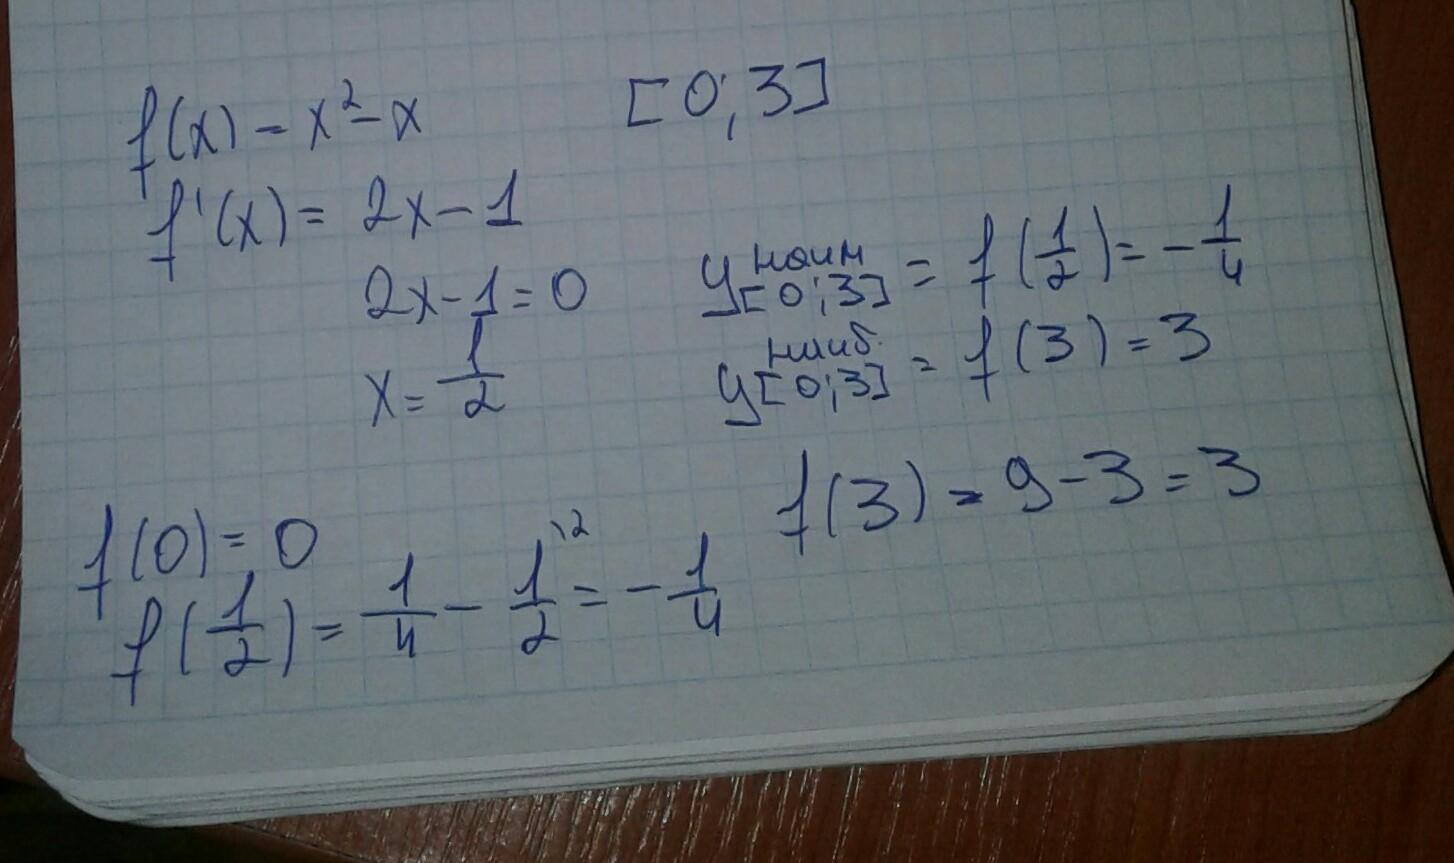 f(x) = x² - x [0; 3]
f'(x) = 2x - 1
2x - 1 = 0
x = 1/2
y наим [0; 3] = f(1/2) = - 1/4
y наиб. [0; 3] = f(3) = 3
f(3) = 9 - 3 = 3
f(0) = 0
f(1/2) = 1/4 - 1/2 \2 = - 1/4